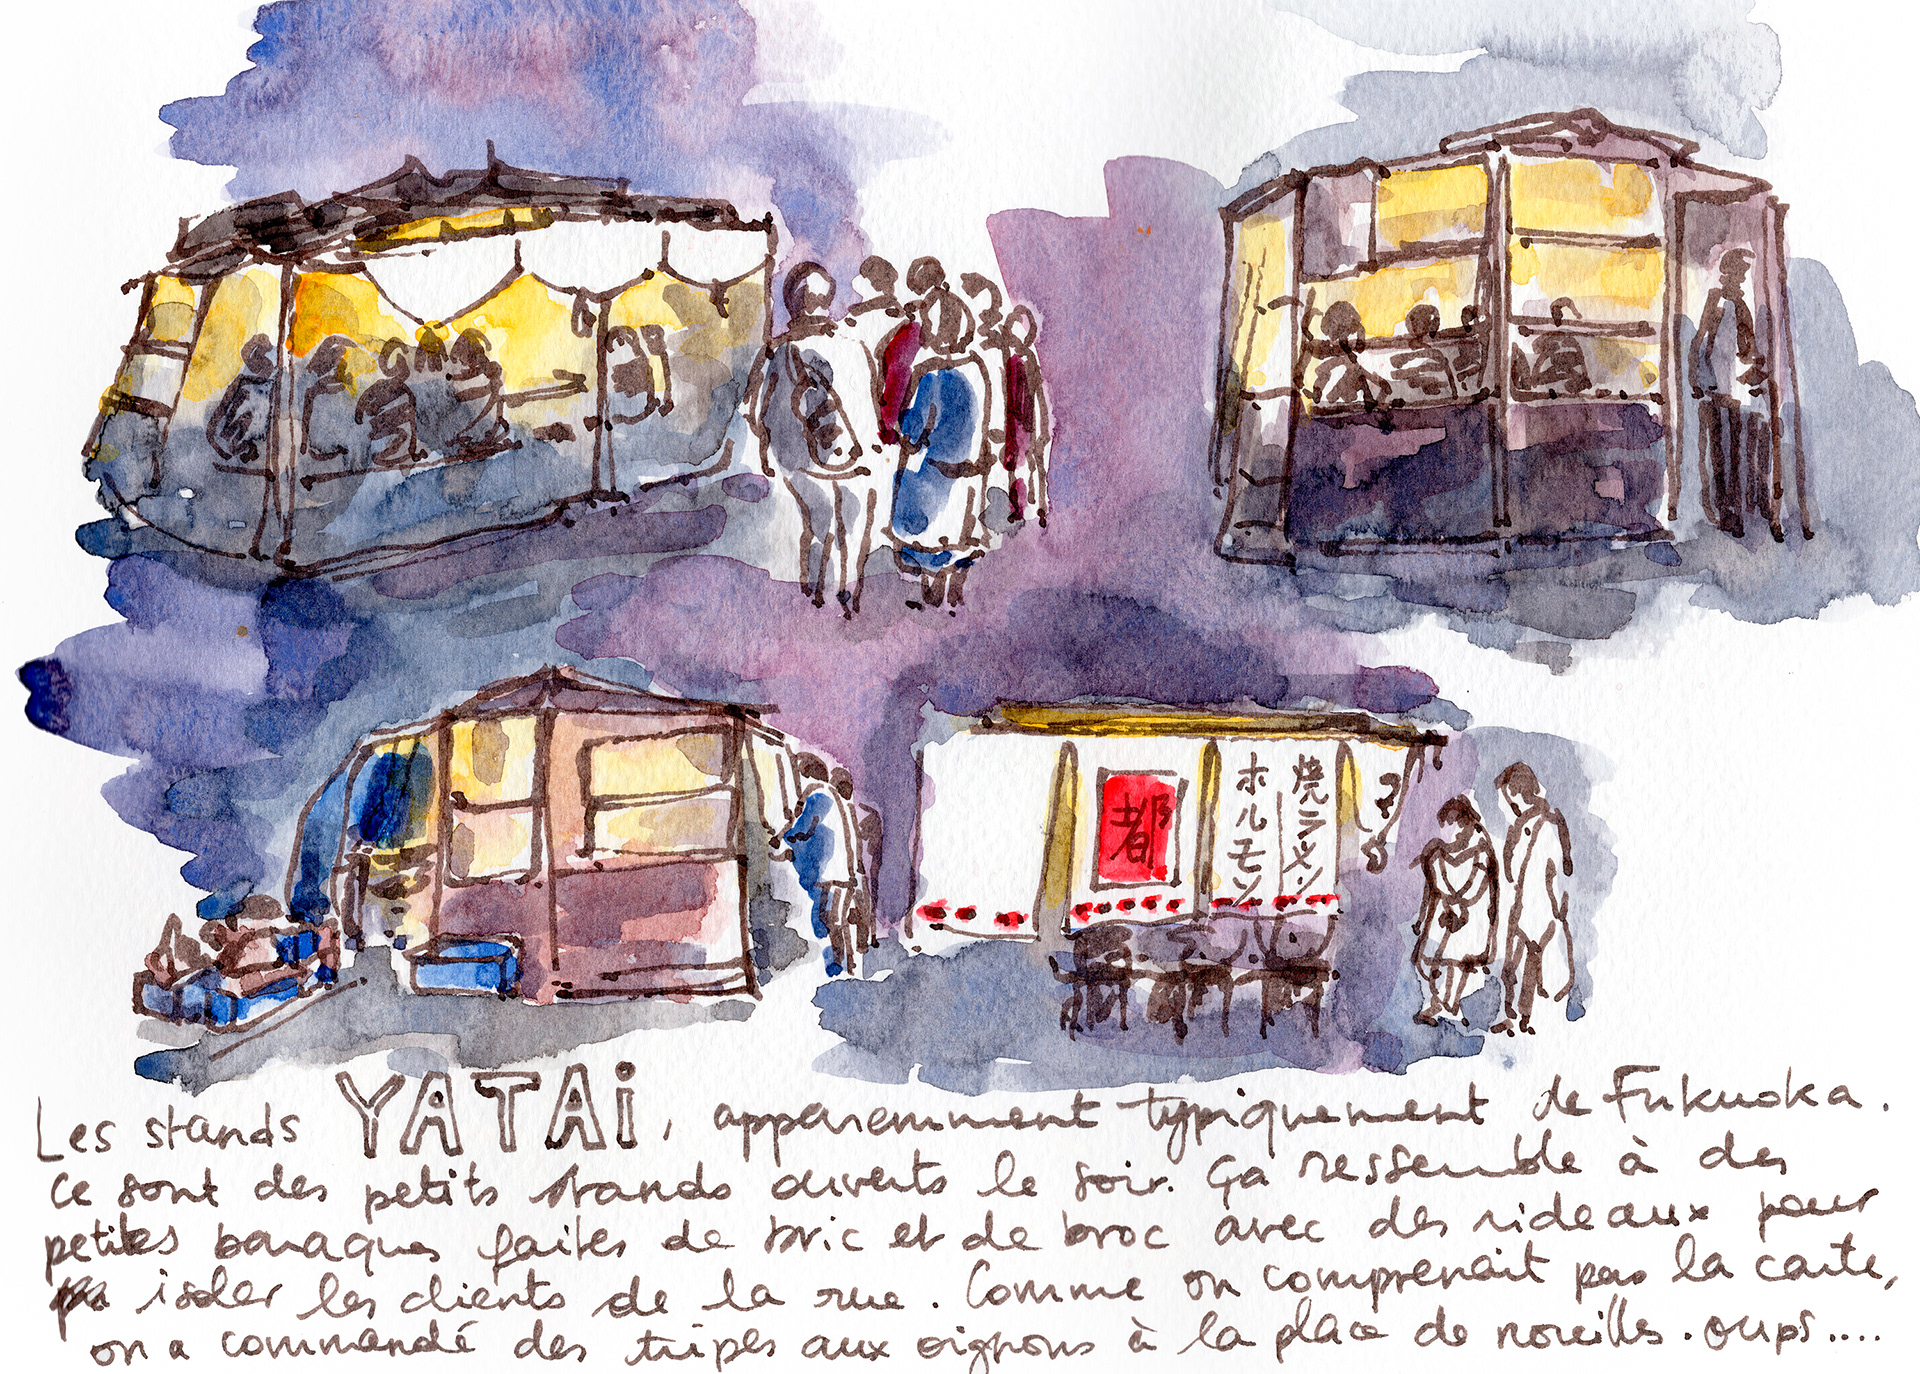 都
焼ラーメン
ホルモン
Les stands YATAi, apparemment typiquement de Fukuoka.
Ce sont des petits stands ouverts le soir. Ça ressemble à des
petites baraques faites de bric et de broc avec des rideaux pour
isoler les clients de la rue. Comme on comprenait pas la carte,
on a commandé des tripes aux oignons à la place de nouilles. oups....